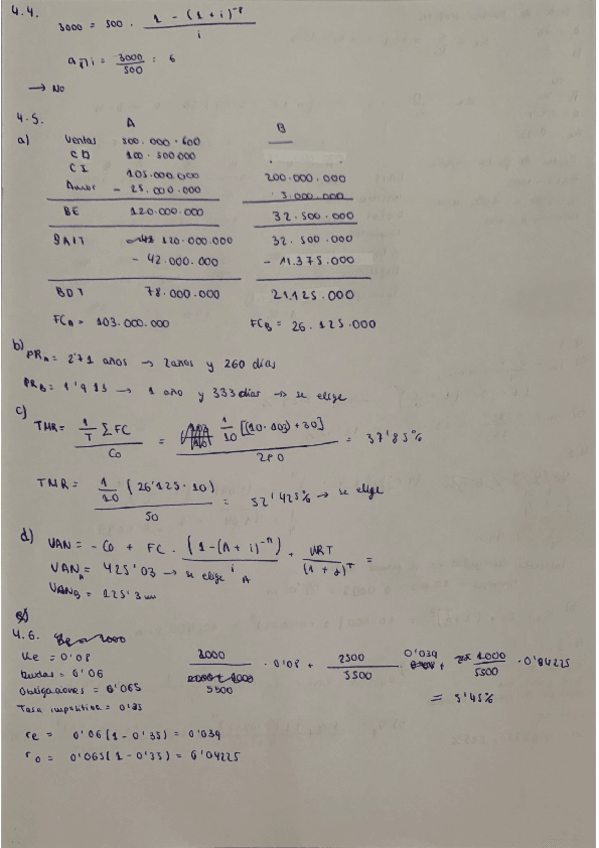 4.4.
3000 = 500 · 1 - (1+i)^-8 / i
a n i = 3000/500 = 6
→ No
4.5. A B
a) Ventas 500.000 · 600 —
CD 100 · 500000
CI 105.000.000 200.000.000
Amor - 25.000.000 5.000.000
BE 120.000.000 32.500.000
BAIT 120.000.000 32.500.000
- 42.000.000 - 11.375.000
BDT 78.000.000 21.125.000
FCA = 103.000.000 FCB = 26.125.000
b) PRA = 2'71 años → 2años y 260 días
PRB = 1'913 → 1 año y 333 días → se elige
c) TMR = 1/T Σ FC / Co = 1/10 [(10·103)+30] / 280 = 37'85%
TMR = 1/10 (26'125·10) / 50 = 52'425% → se elige
d) VAN = - Co + FC · (1-(1+i)^-n) / i + VRT / (1+i)^T =
VANA = 425'03 → se elige A
VANB = 125'3
4.6.
Ke = 0'08 2000/5500 · 0'08 + 2500/5500 · 0'039 + 1000/5500 · 0'04225
Deudas = 0'06
Obligaciones = 0'065 = 5'45%
Tasa impositiva = 0'35
re = 0'06(1-0'35) = 0'039
ro = 0'065(1-0'35) = 0'04225